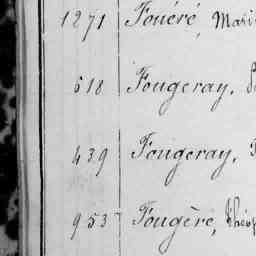 1271 Fouéré, Mari
518 Fougeray,
439 Fougeray,
953 Fougère, Théop